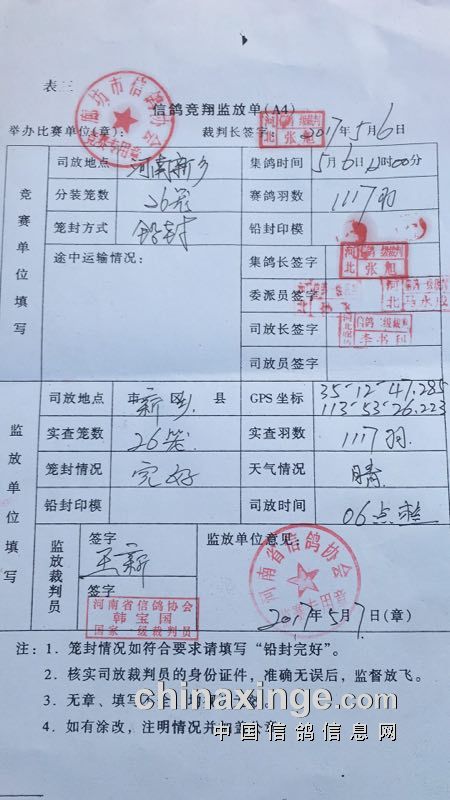 表三
廊坊市信鸽协会
竞赛专用章
信鸽竞翔监放单(A4)
举办比赛单位(章): 裁判长签字: 2017年5月6日
竞赛单位填写
司放地点 河南新乡 集鸽时间 5月6日 时00分
分装笼数 26笼 赛鸽羽数 1117羽
笼封方式 铅封 铅封印模
途中运输情况: 集鸽长签字 河北 张旭
委派员签字
司放长签字
司放员签字
监放单位填写
司放地点 市 新乡 县 GPS坐标 35-12-47.285
113-53-26.223
实查笼数 26笼 实查羽数 1117羽
笼封情况 完好 天气情况 晴
铅封印模 司放时间 06点整
监放裁判员
签字
王新
签字
河南省信鸽协会
韩宝国
国家一级裁判员
监放单位意见:
河南省信鸽协会
2017年5月7日(章)
注:1. 笼封情况如符合要求请填写“铅封完好”。
2. 核实司放裁判员的身份证件,准确无误后,监督放飞。
3. 无章、填写
4. 如有涂改,注明情况并加盖公章。
www.chinaxinge.com
中国信鸽信息网